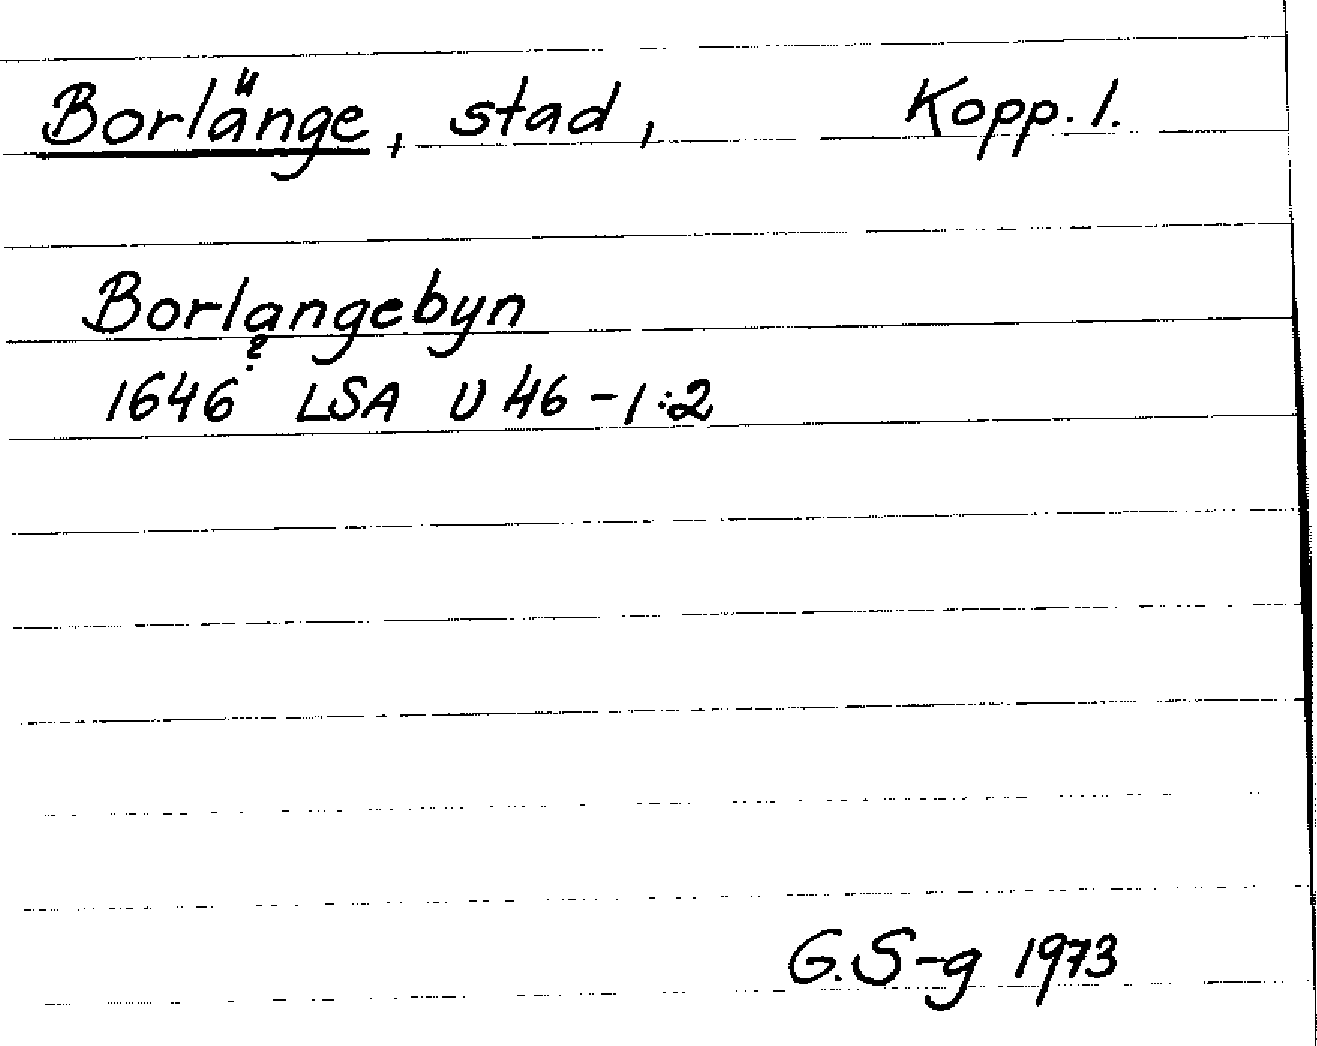 Borlänge, stad, Kopp. l.
Borlangebyn
?
1646 LSA U 46-1:2
G.S-g 1973